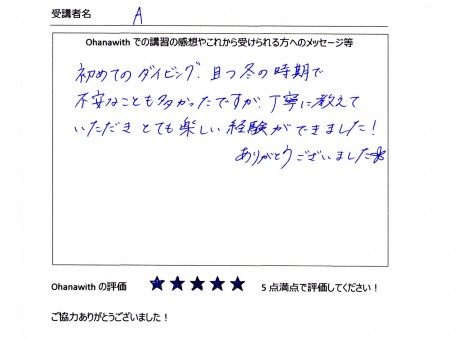 受講者名 A
Ohanawith での講習の感想やこれから受けられる方へのメッセージ等
初めてのダイビング、且つ冬の時期で
不安なことも多かったですが、丁寧に教えて
いただきとても楽しい経験ができました!
ありがとうございました
Ohanawith の評価 ★★★★★ 5 点満点で評価してください!
ご協力ありがとうございました!